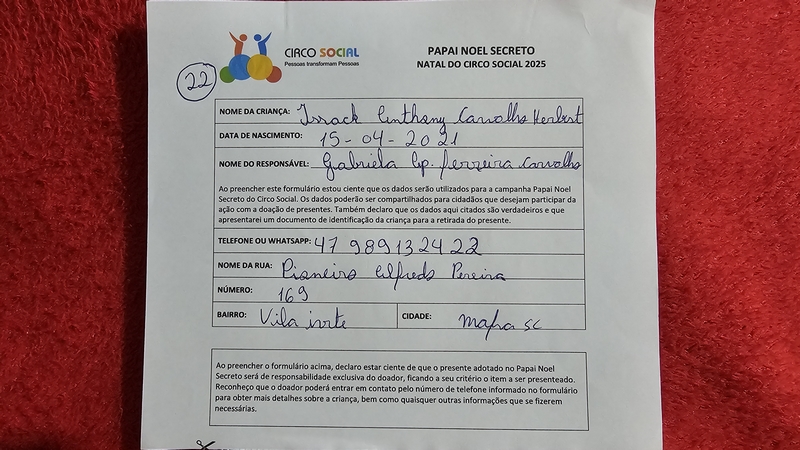 CIRCO SOCIAL
Pessoas transformam Pessoas
PAPAI NOEL SECRETO
NATAL DO CIRCO SOCIAL 2025
22
NOME DA CRIANÇA: Israck Anthony Carvalho Herbert
DATA DE NASCIMENTO: 15-04-2021
NOME DO RESPONSÁVEL: Gabriela Ap. Ferreira Carvalho
Ao preencher este formulário estou ciente que os dados serão utilizados para a campanha Papai Noel
Secreto do Circo Social. Os dados poderão ser compartilhados para cidadãos que desejam participar da
ação com a doação de presentes. Também declaro que os dados aqui citados são verdadeiros e que
apresentarei um documento de identificação da criança para a retirada do presente.
TELEFONE OU WHATSAPP: 47 989132422
NOME DA RUA: Pioneiro Alfredo Pereira
NÚMERO: 169
BAIRRO: Vila ivete CIDADE: Mafra SC
Ao preencher o formulário acima, declaro estar ciente de que o presente adotado no Papai Noel
Secreto será de responsabilidade exclusiva do doador, ficando a seu critério o item a ser presenteado.
Reconheço que o doador poderá entrar em contato pelo número de telefone informado no formulário
para obter mais detalhes sobre a criança, bem como quaisquer outras informações que se fizerem
necessárias.